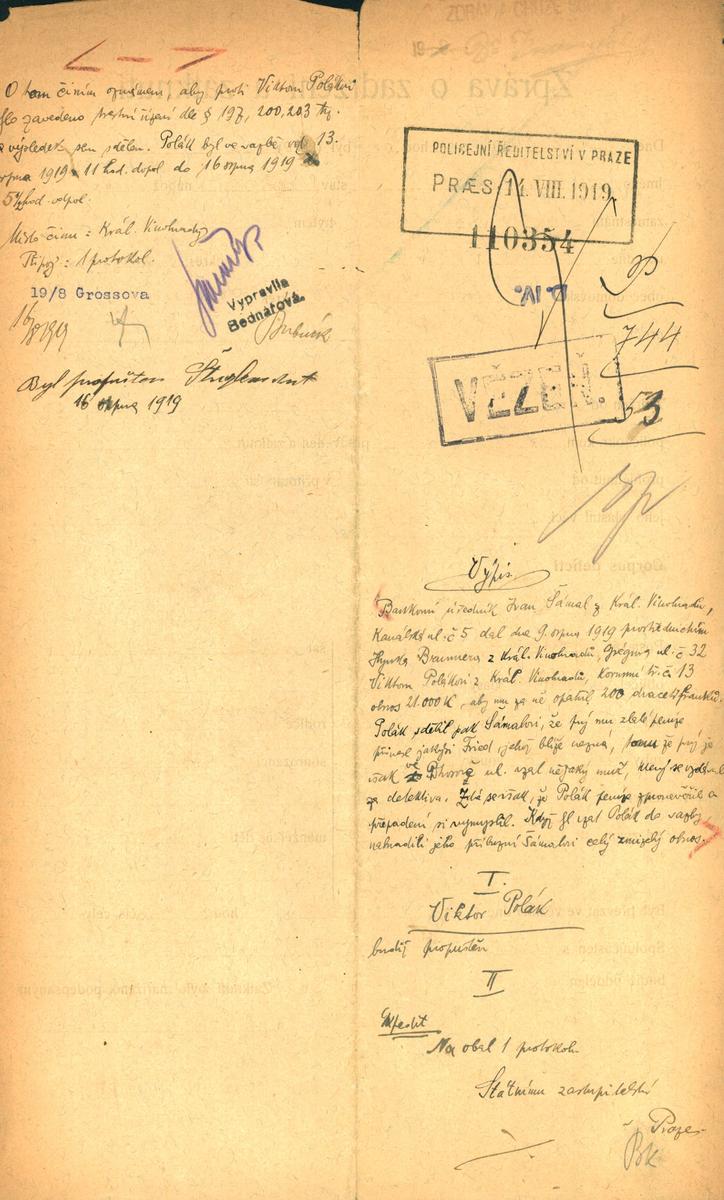 O tom činím oznámení, aby proti Viktoru Polákovi
bylo zavedeno trestní řízení dle § 197, 200, 203 tr. z.
a výsledek sem sdělen. Polák byl ve vazbě od 13.
srpna 1919 11 hod. dopol. do 16 srpna 1919
5½ hod. odpol.
Místo činu: Král. Vinohrady
Příp.: 1 protokol.
19/8 Grossova
Vypravila
Bednářová.
16/8 1919
Byl propuštěn
16 srpna 1919
POLICEJNÍ ŘEDITELSTVÍ V PRAZE
PRÆS. 14. VIII. 1919
110354
D. IV.
744
53
VĚZEŇ.
Výpis.
Bankovní úředník Ivan Šámal z Král. Vinohradů,
Kanálská ul. č 5 dal dne 9. srpna 1919 prostřednictvím
Hynka Braunnera z Král. Vinohradů, Grégrova ul. č 32
Viktoru Polákovi z Král. Vinohradů, Korunní tř. č 13
obnos 21.000 K, aby mu za ně opatřil 200 dvacetifranků.
Polák sdělil pak Šámalovi, že prý mu zlaté peníze
přinesl jakýsi Friedl, jehož blíže nezná, že prý je
však ve ul. vzal nějaký muž, který se vydával
za detektiva. Zdá se však, že Polák peníze zpronevěřil a
přepadení si vymyslil. Když byl vzat Polák do vazby,
nahradili jeho příbuzní Šámalovi celý zmizelý obnos.
I.
Viktor Polák
budiž propuštěn
II
Expedit
Na obal 1 protokolu
Státnímu zastupitelství
v Praze